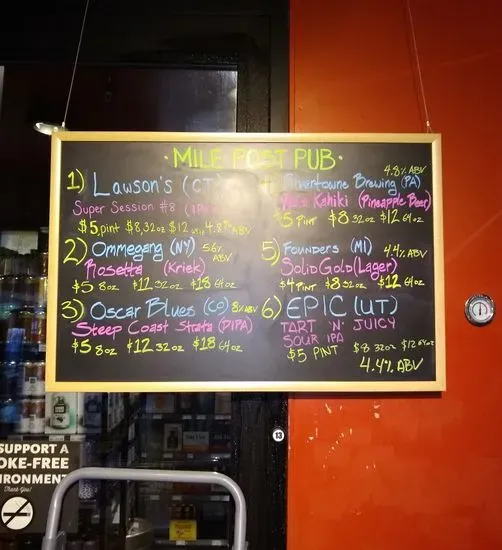 • MILE POST PUB •
1) Lawson's (CT)
Super Session #8
$5 pint $8 32oz $12 4.8% ABV
2) Ommegang (NY) 5.6% ABV
Rosetta (Kriek)
$5 8oz $12 32oz $18 64oz
3) Oscar Blues (CO) 8% ABV
Steep Coast Strata (DIPA)
$5 8oz $12 32oz $18 64oz
4.8% ABV
Brewing (PA)
Kahiki (Pineapple Beer)
$5 Pint $8 32oz $12 64oz
5) Founders (MI) 4.4% ABV
Solid Gold (Lager)
$4 Pint $8 32oz $12 64oz
6) EPIC (UT)
TART 'N' JUICY
SOUR IPA
$5 PINT $8 32oz $12 64oz
4.4% ABV
13
SUPPORT A
OKE-FREE
IRONMENT
Thank You!